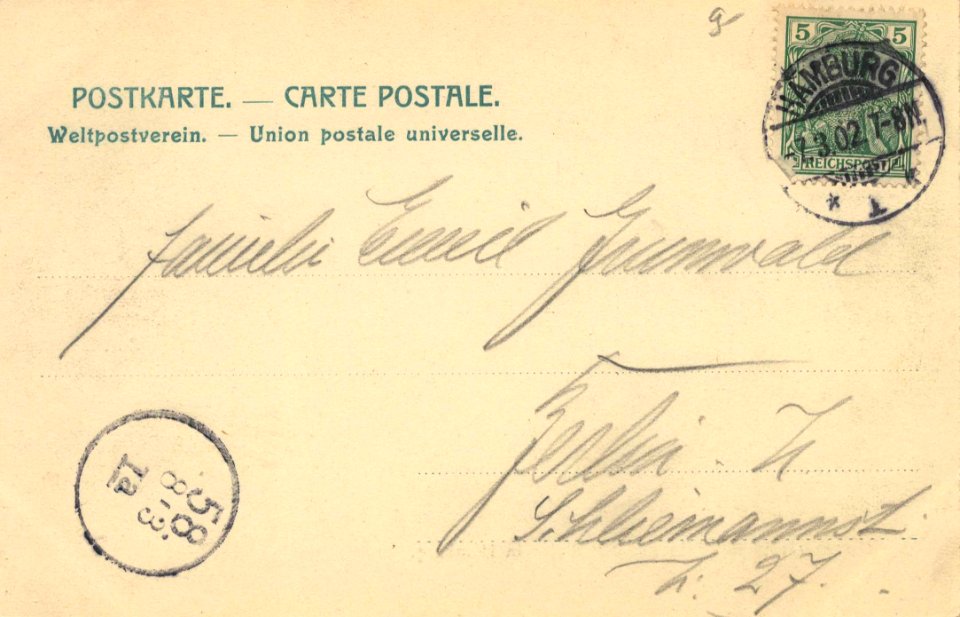 POSTKARTE. — CARTE POSTALE.
Weltpostverein. — Union postale universelle.
5 5
REICHSPOST
HAMBURG
7.3.02 7-8N.
* 1 *
Familie Emil Grunwald
Berlin. N
Schliemannst.
N: 27.
58
8-3
1a